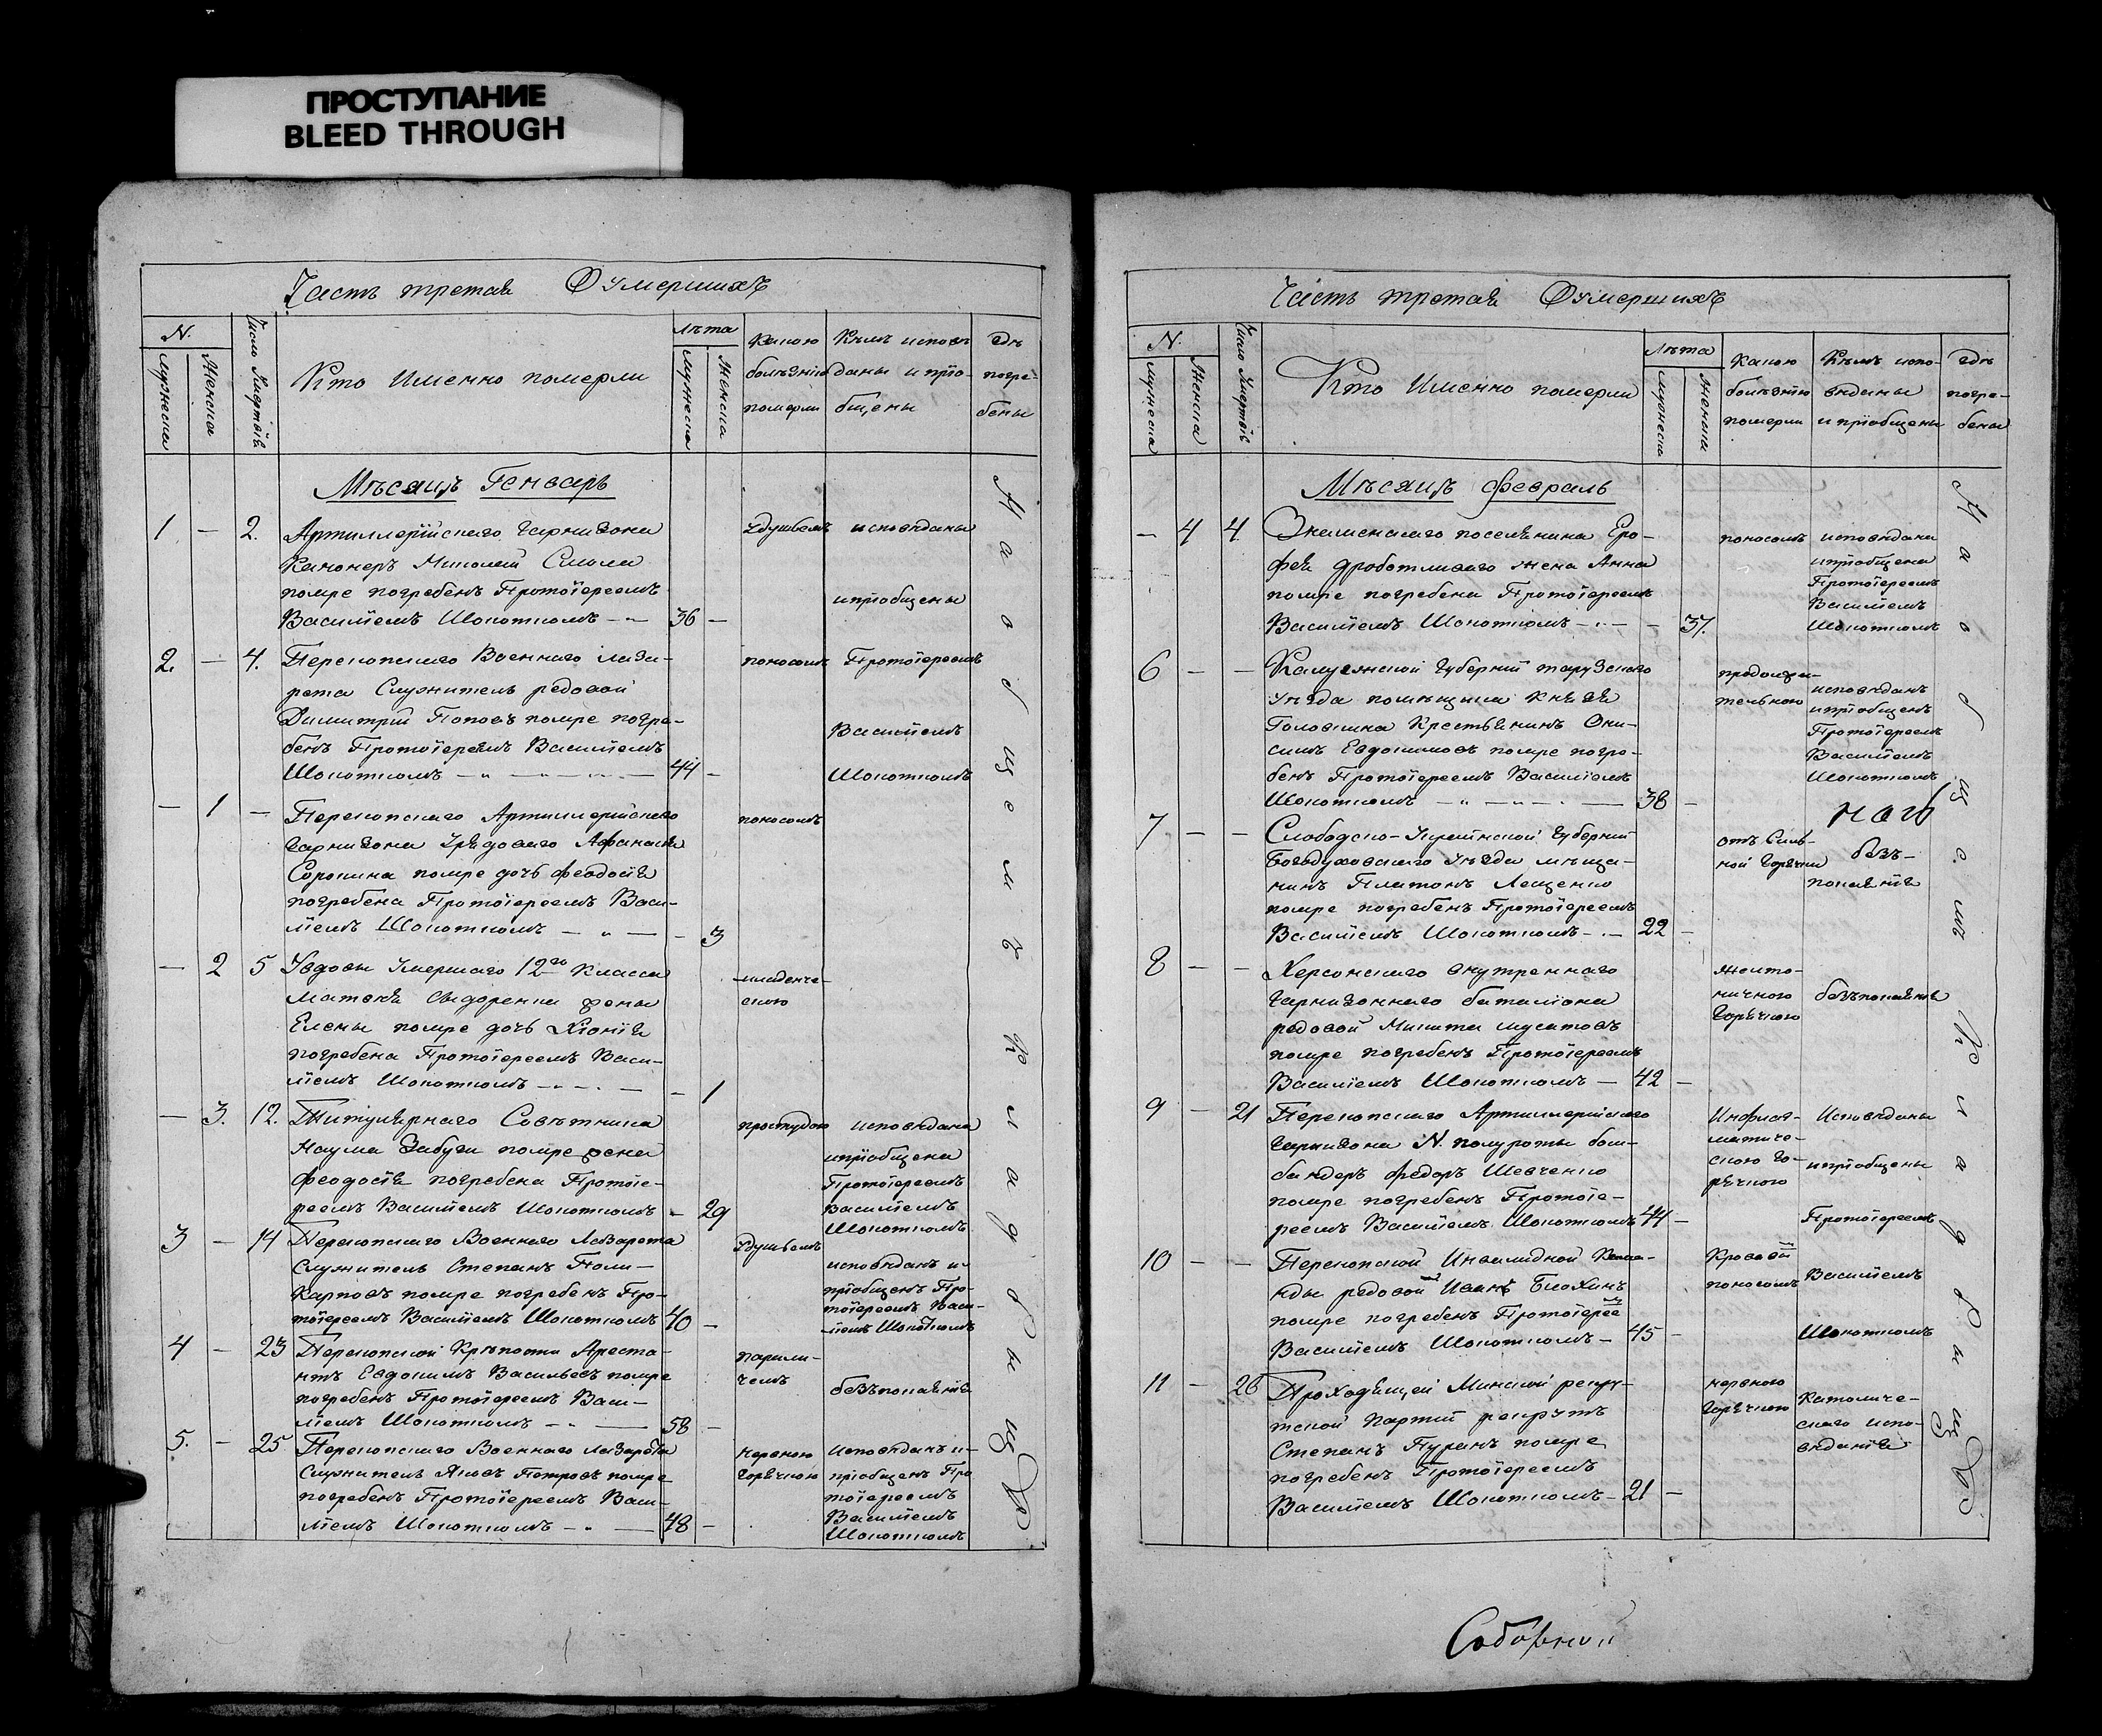 ПРОСТУПАНИЕ
BLEED THROUGH
Часть третая О умершихъ
N.
Мужеска
Женска
Число Смертей
Кто Именно померли
Лѣта
Мужеска
Женска
Какою
болѣзнію
померли
Кѣмъ исповѣ
даны и прїо-
бщены
Гдѣ
погре-
бены
Мѣсяцъ Генварь
1 — 2. Артиллерійскаго Гарнизона
Канонеръ Миколай
помре погребенъ Протоіереемъ
Василіемъ Шокоткомъ — 36 —
Удушьемъ
исповѣданы
ипріобщены
2. — 4. Перекопскаго Военнаго лаза-
рета Служитель редовой
Димитрій Поповъ помре погре-
бенъ Протоіереемъ Василіемъ
Шокоткомъ — 44 —
поносомъ
Протоіереемъ
Василіемъ
Шокоткомъ
— 1 — Перекопскаго Артиллерійскаго
Гарнизона Урядоваго Афанасія
Сорокина помре дочь Феодосія
погребена Протоіереемъ Васи-
ліемъ Шокоткомъ — — 3
поносомъ
— 2 5 Удовы Умершаго 12го класса
Матвея Сидоренка жены
Елены помре дочь Хіонія
погребена Протоіереемъ Васи-
ліемъ Шокоткомъ — — 1
младенче-
скою
— 3. 12. Титулярнаго Совѣтника
Наума Забуги помре жена
Феодосія погребена Протоіе-
реемъ Василіемъ Шокоткомъ — 29
простудою
исповѣдана
ипріобщена
Протоіереемъ
Василіемъ
Шокоткомъ
3 — 14 Перекопскаго Военнаго Лазарета
Служитель Степанъ Поли-
карповъ помре погребенъ Про-
тоіереемъ Василіемъ Шокоткомъ 40 —
Удушьемъ
исповѣданъ и
пріобщенъ Про-
тоіереемъ Васи-
ліемъ Шокоткомъ
4 — 23 Перекопской Крѣпости Ареста-
нтъ Евдокимъ Васильевъ помре
погребенъ Протоіереемъ Васи-
ліемъ Шокоткомъ — 58 —
парали-
чемъ
безъпокаянія
5. — 25 Перекопскаго Военнаго лазарета
Служитель Яковъ Петровъ помре
погребенъ Протоіереемъ Васи-
ліемъ Шокоткомъ — 48 —
нервною
горячкою
исповѣданъ и
пріобщенъ Про
тоіереемъ
Василіемъ
Шокоткомъ
На общемъ кладбыщѣ
Часть третая О умершихъ
N.
Мужеска
Женска
Число Смертей
Кто Именно померли
Лѣта
Мужеска
Женска
Какою
болѣзнію
померли
Кѣмъ испо-
вѣданы
и пріобщены
Гдѣ
погре-
бены
Мѣсяцъ Февраль
— 4 4 Знаменскаго поселянина Еро-
фея Дроботливаго жена Анна
помре погребена Протоіереемъ
Василіемъ Шокоткомъ — — 37.
поносомъ
исповѣдана
ипріобщена
Протоіереемъ
Василіемъ
Шокоткомъ
6 — — Калужской Губерніи тарузского
Уѣзда помѣщика Князя
Головкина Крестьянинъ Они-
симъ Евдокимовъ помре погре-
бенъ Протоіереемъ Василіемъ
Шокоткомъ — 38 —
продолжи-
тельною
исповѣданъ
ипріобщенъ
Протоіереемъ
Василіемъ
Шокоткомъ
7 — — Слободско-Украинской Губерніи
Богодуховскаго Уѣзда мѣща-
нинъ Платонъ Лещенко
помре погребенъ Протоіереемъ
Василіемъ Шокоткомъ — 22 —
отъ Силь-
ной Горячки
безъ-
покаянія
8 — — Херсонскаго внутреннаго
Гарнизоннаго баталіона
редовой Микита Мусатовъ
помре погребенъ Протоіереемъ
Василіемъ Шокоткомъ — 42 —
желто-
ничного
Горячкою
безъпокаянія
9 — 21 Перекопскаго Артиллерійскаго
Гарнизона N. полуроты бом-
бандеръ Федоръ Шевченко
помре погребенъ Протоіе-
реемъ Василіемъ Шокоткомъ 44 —
Инфлог-
матиче-
скою Го-
рячкою
Исповѣданы
ипріобщены
Протоіереемъ
10 — — Перекопской Инвалидной Кома-
нды редовой Иванъ Блохинъ
помре погребенъ Протоіерее
Василіемъ Шокоткомъ — 45 —
Кровавой
поносомъ
Василіемъ
Шокоткомъ
11 — 26 Проходящей Минской рекру-
тской Партіи рекрутъ
Степанъ Пуранъ помре
погребенъ Протоіереемъ
Василіемъ Шокоткомъ — 21 —
нервною
Горячкою
Католиче-
скаго испо-
вѣданія
На общемъ кладбыщѣ
Соборной